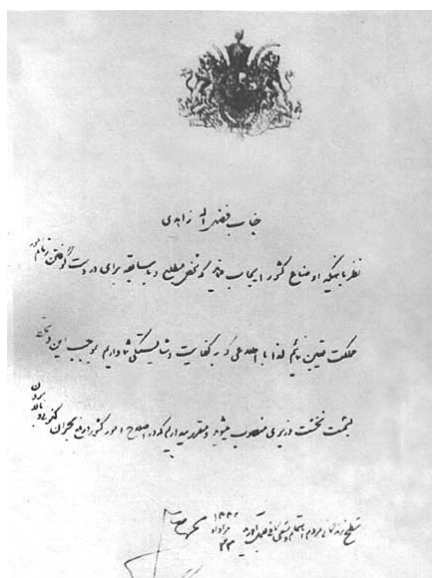 جناب فضل اله زاهدی
نظر باینکه اوضاع کشور ایجاب مینماید که شخص مطلع و با سابقه برای در دست گرفتن زمام امور
مملکت تعیین نمائیم لذا با اطلاعی که به کفایت و شایستگی شما داریم بموجب این دستخط
بسمت نخست وزیری منصوب میشوید و مقرر میداریم که در اصلاح امور کشور و رفع بحران کنونی و بالا بردن
سطح زندگانی مردم اهتمام و سعی کافی بعمل آورید
۲۲ مرداد ماه ۱۳۳۲